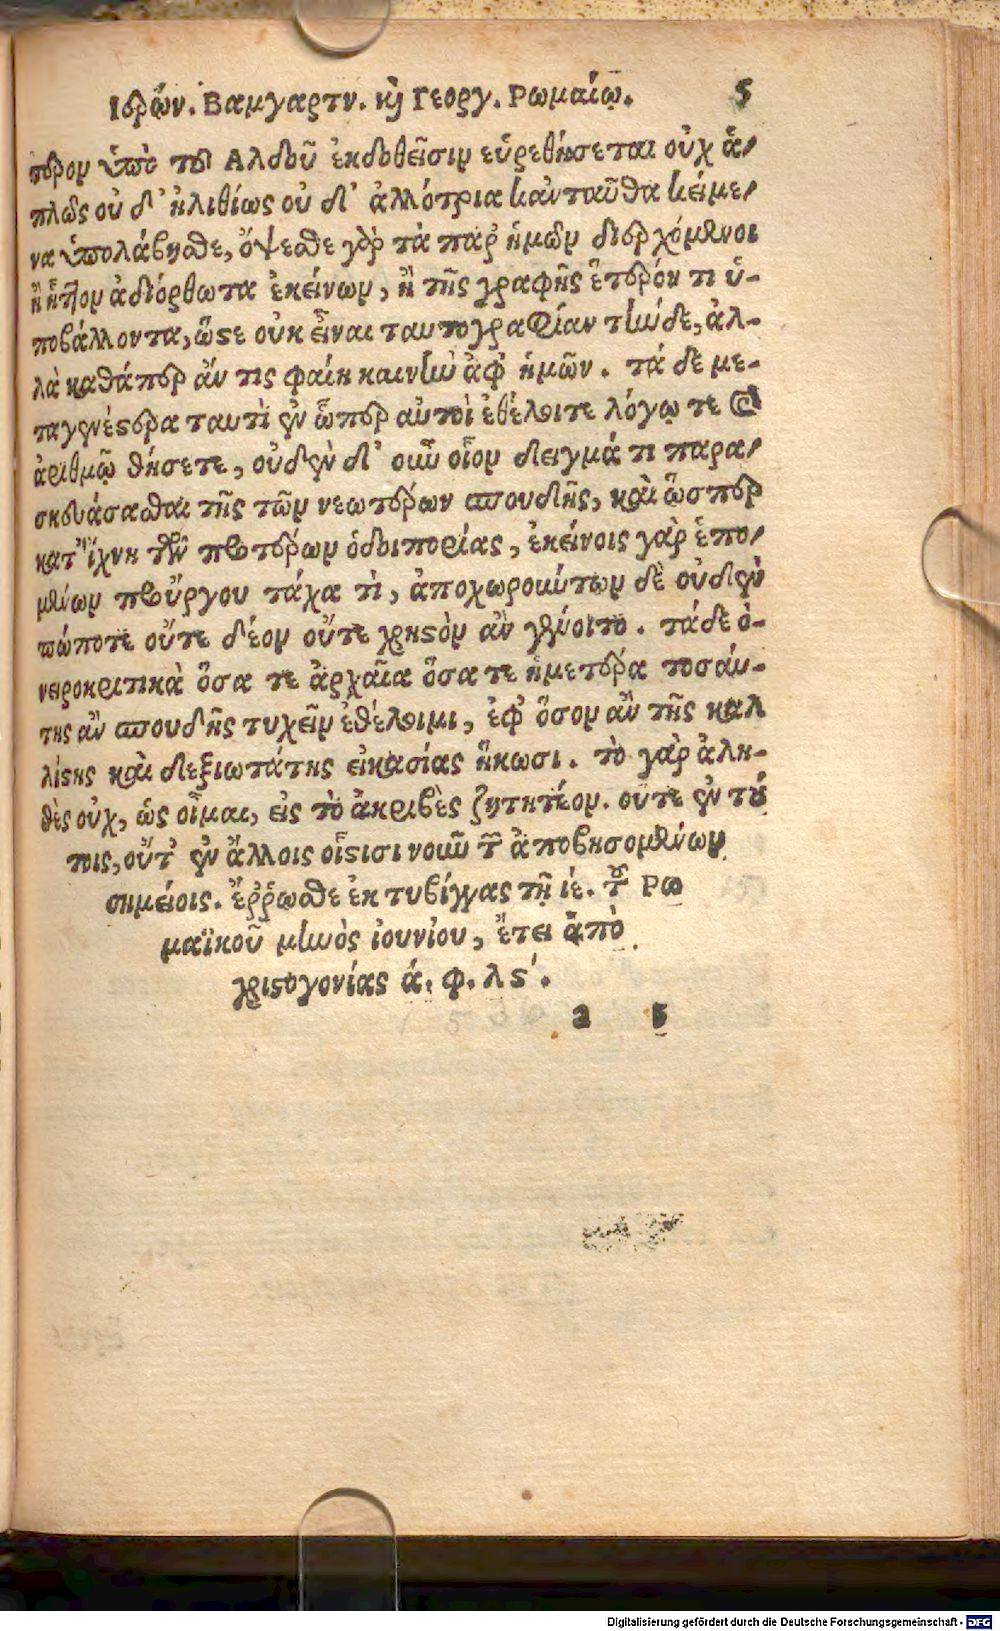 Ἱερών. Βαμγαρτν. καὶ Γεοργ. Ρωμαίῳ. 5
περον ὑπὸ τοῦ Αλδοῦ ἐκδοθεῖσιν εὑρεθήσεται οὐχ ἁ/
πλῶς οὐ δ' ἠλιθίως οὐ δ' ἀλλότρια κἀνταῦθα κείμε/
να ὑπολάβησθε, ὄψεσθε γὰρ τὰ παρ' ἡμῶν διερχόμενοι
ἢ ἧττον ἀδιόρθωτα ἐκείνων, ἢ τῆς γραφῆς ἕτερόν τι ὑ-
ποβάλλοντα, ὥστε οὐκ εἶναι ταυτογραφίαν τήνδε, ἀλ-
λὰ καθάπερ ἄν τις φαίη καινὴν ἀφ' ἡμῶν. τά δε με-
ταγενέστερα ταυτὶ ἐν ᾧπερ αὐτοὶ ἐθέλοιτε λόγῳ τε καὶ
ἀριθμῷ θήσετε, οὐδὲν δ' οὖν οἷον δειγμά τι παρα/
σκευάσασθαι τῆς τῶν νεωτέρων σπουδῆς, καὶ ὥσπερ
κατ' ἴχνη τῶν προτέρων ὁδοιπορίας, ἐκείνοις γὰρ ἑπο/
μένων προὔργου τάχα τὶ, ἀποχωρούντων δὲ οὐδὲν
πώποτε οὔτε δέον οὔτε χρηστὸν ἂν γένοιτο. τάδε ὀ-
νειροκριτικὰ ὅσα τε ἀρχαῖα ὅσα τε ἡμετέρα τοσάυ-
της ἂν σπουδῆς τυχεῖν ἐθέλοιμι, ἐφ' ὅσον ἂν τῆς καλ
λίστης καὶ δεξιωτάτης εἰκασίας ἥκωσι. τὸ γὰρ ἀλη-
θὲς οὐχ, ὡς οἶμαι, εἰς τὸ ἀκριβὲς ζητητέον. ούτε ἐν τού
τοις, οὔτ' ἐν ἄλλοις οἷστισι νοῦν τῶν ἀποβησομένων
σημείοις. Ἔρρωσθε ἐκ τυβίγγας τῇ ιέ. τοῦ Ρω
μαϊκοῦ μηνὸς ἰουνίου, ἔτει ἀπὸ
χριστογονίας ά. φ. λϛ'.
a 5
Digitalisierung gefördert durch die Deutsche Forschungsgemeinschaft - DFG